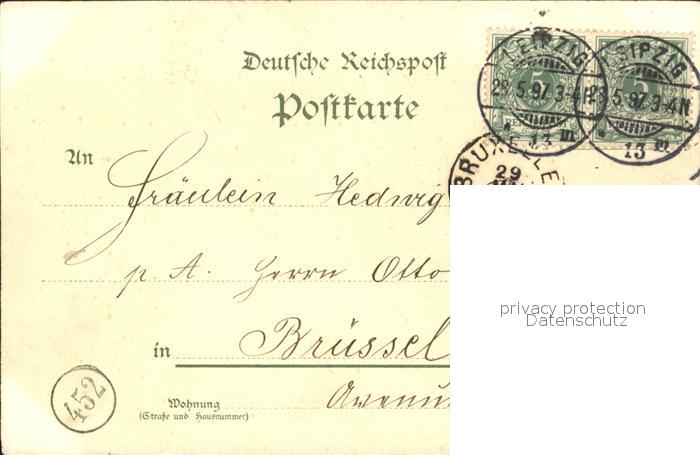 Deutsche Reichspost
Postkarte
LEIPZIG
28.5.97.3-4N
13 m
LEIPZIG
5.97.3-4N
13 m
5
BRUXELLE
29
An
Fräulein Hedwig
p. A. Herrn Otto
in Brüssel
Wohnung
(Straße und Hausnummer)
452
privacy protection
Datenschutz